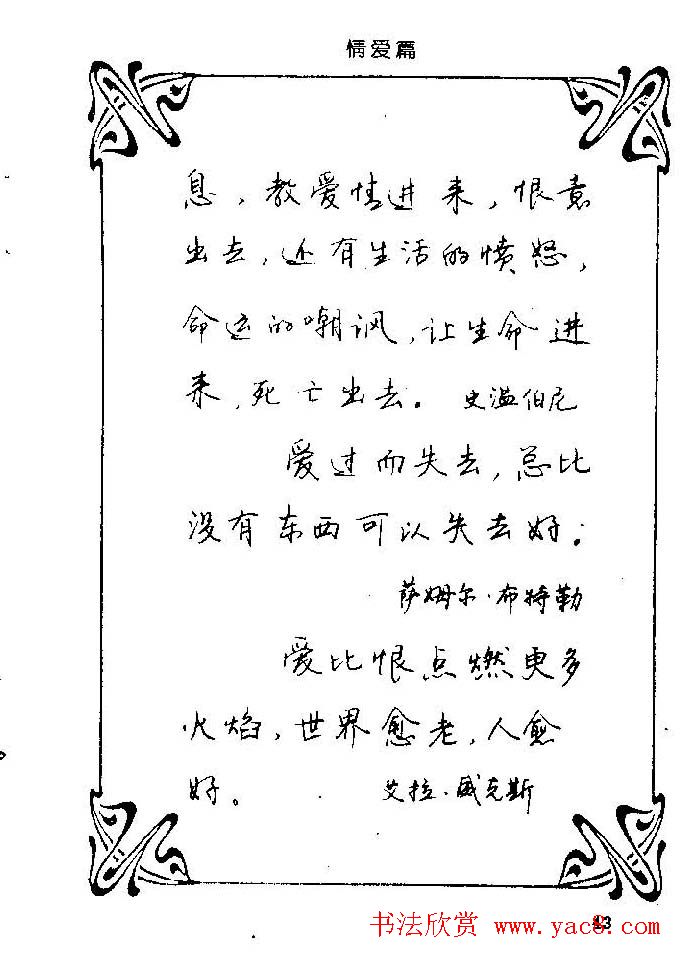 情爱篇
息，教爱情进来，恨意
出去，还有生活的愤怒，
命运的嘲讽，让生命进
来，死亡出去。 史温伯尼
爱过而失去，总比
没有东西可以失去好。
萨姆尔·布特勒
爱比恨点燃更多
火焰，世界愈老，人愈
好。 艾拉·威克斯
书法欣赏 www.yac8.com